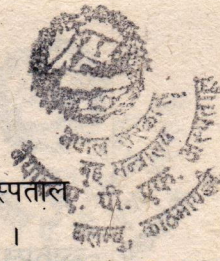 नेपाल सरकार
गृह मन्त्रालय
नेपाल ए. पी. एफ. अस्पताल
बलम्बु, काठमाण्डौ
स्पताल
।